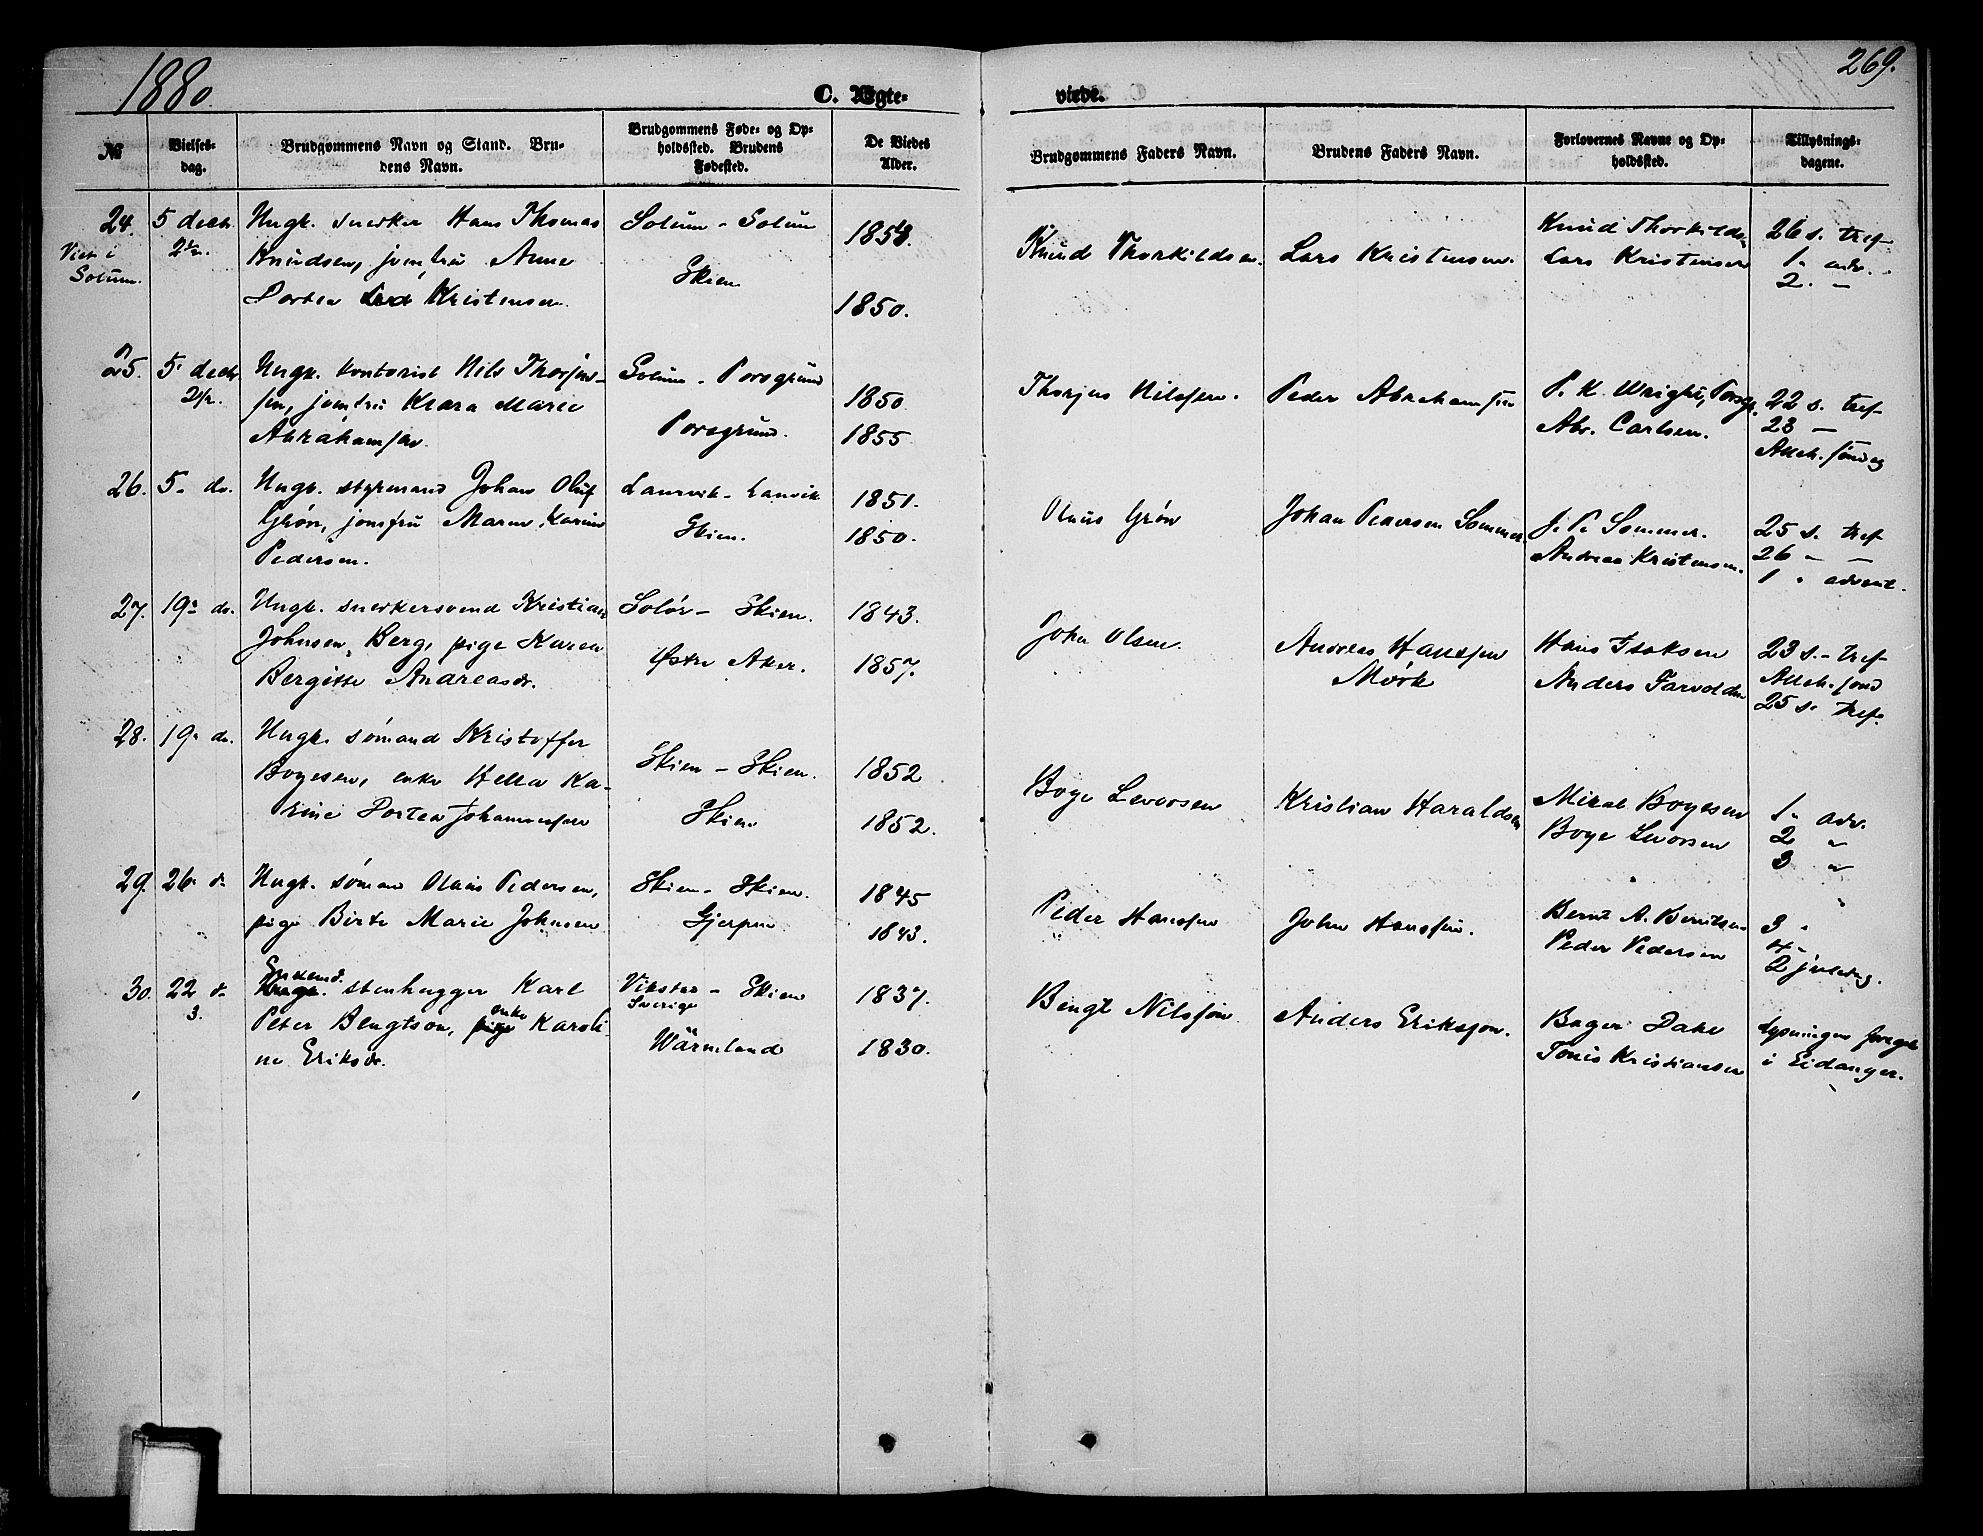 1880.
C. Ægte-
viede.
269.
№
Vielses-
dag.
Brudgommens Navn og Stand. Bru-
dens Navn.
Brudgommens Føde- og Op-
holdssted. Brudens
Fødested.
De Viedes
Alder.
Brudgommens Faders Navn.
Brudens Faders Navn.
Forlovernes Navne og Op-
holdssted.
Tillysnings-
dagene.
24.
Viet i
Solum.
5 decbr.
Ungk. snedker Hans Thomas
Knudsen, jomfru Anne
Dortea Kristensen.
Solum - Solum
Skien
1858.
1850.
Knud Thorkildsen.
Lars Kristensen.
Knud Thorkildsen
Lars Kristensen
26 s. tref
1. adv.
2. -
25.
5. decbr.
Ungk. kontorist Nils Thorjus-
sen, jomfru Klara Marie
Abrahamsen.
Solum - Porsgrund
Porsgrund.
1850
1855
Thorjus Nilssen.
Peder Abrahamsen
P. K. Wright, Porsgr.
Abr. Carlsen.
22 s. tref
23 -
Alleh. søndag
26.
5. do.
Ungk. styrmand Johan Oluf
Grøn, jomfru Maren Karine
Pedersen.
Laurvik - Laurvik
Skien.
1851.
1850.
Olaus Grøn
Johan Pedersen Sommer
J. P. Sommer.
Andreas Kristensen.
25 s. tref
26 - -
1 . advent.
27.
19. do.
Ungk. snedkersvend Kristian
Johnsen Berg, pige Karen
Bergitte Andreasdr.
Solør - Skien.
Østre Aker.
1843.
1857.
John Olsen.
Andreas Hanssen
Mørk
Hans Isaksen
Anders Farvolden
23 s. - tref
Alleh. sønd
25 s. tref.
28.
19. do.
Ungk. sømand Kristoffer
Boyesen, enke Hella Ka-
rine Dortea Johannesen
Skien - Skien.
Skien
1852
1852.
Boye Levorsen
Kristian Haraldsen
Mikal Boyesen
Boye Levorsen
1. adv.
2 "
3 "
29.
26. d.
Ungk. sømand Olaus Pedersen,
pige Birte Marie Johnsen
Skien - Skien.
Gjerpen
1845
1843.
Peder Hanssen
John Hanssen.
Bernt A. Berntsen
Peder Pedersen
3 .
4 -
2 juledag.
30.
22 d.
3.
Enkemd.
stenhugger Karl
Peter Bengtson, enke Karoli-
ne Eriksdr.
Vikstad - Skien
Sverige
Wärmland
1837.
1830.
Bengt Nilsson
Anders Eriksson.
Bager Dake
Tonis Kristiansen
lysningen foregik
i Eidanger.